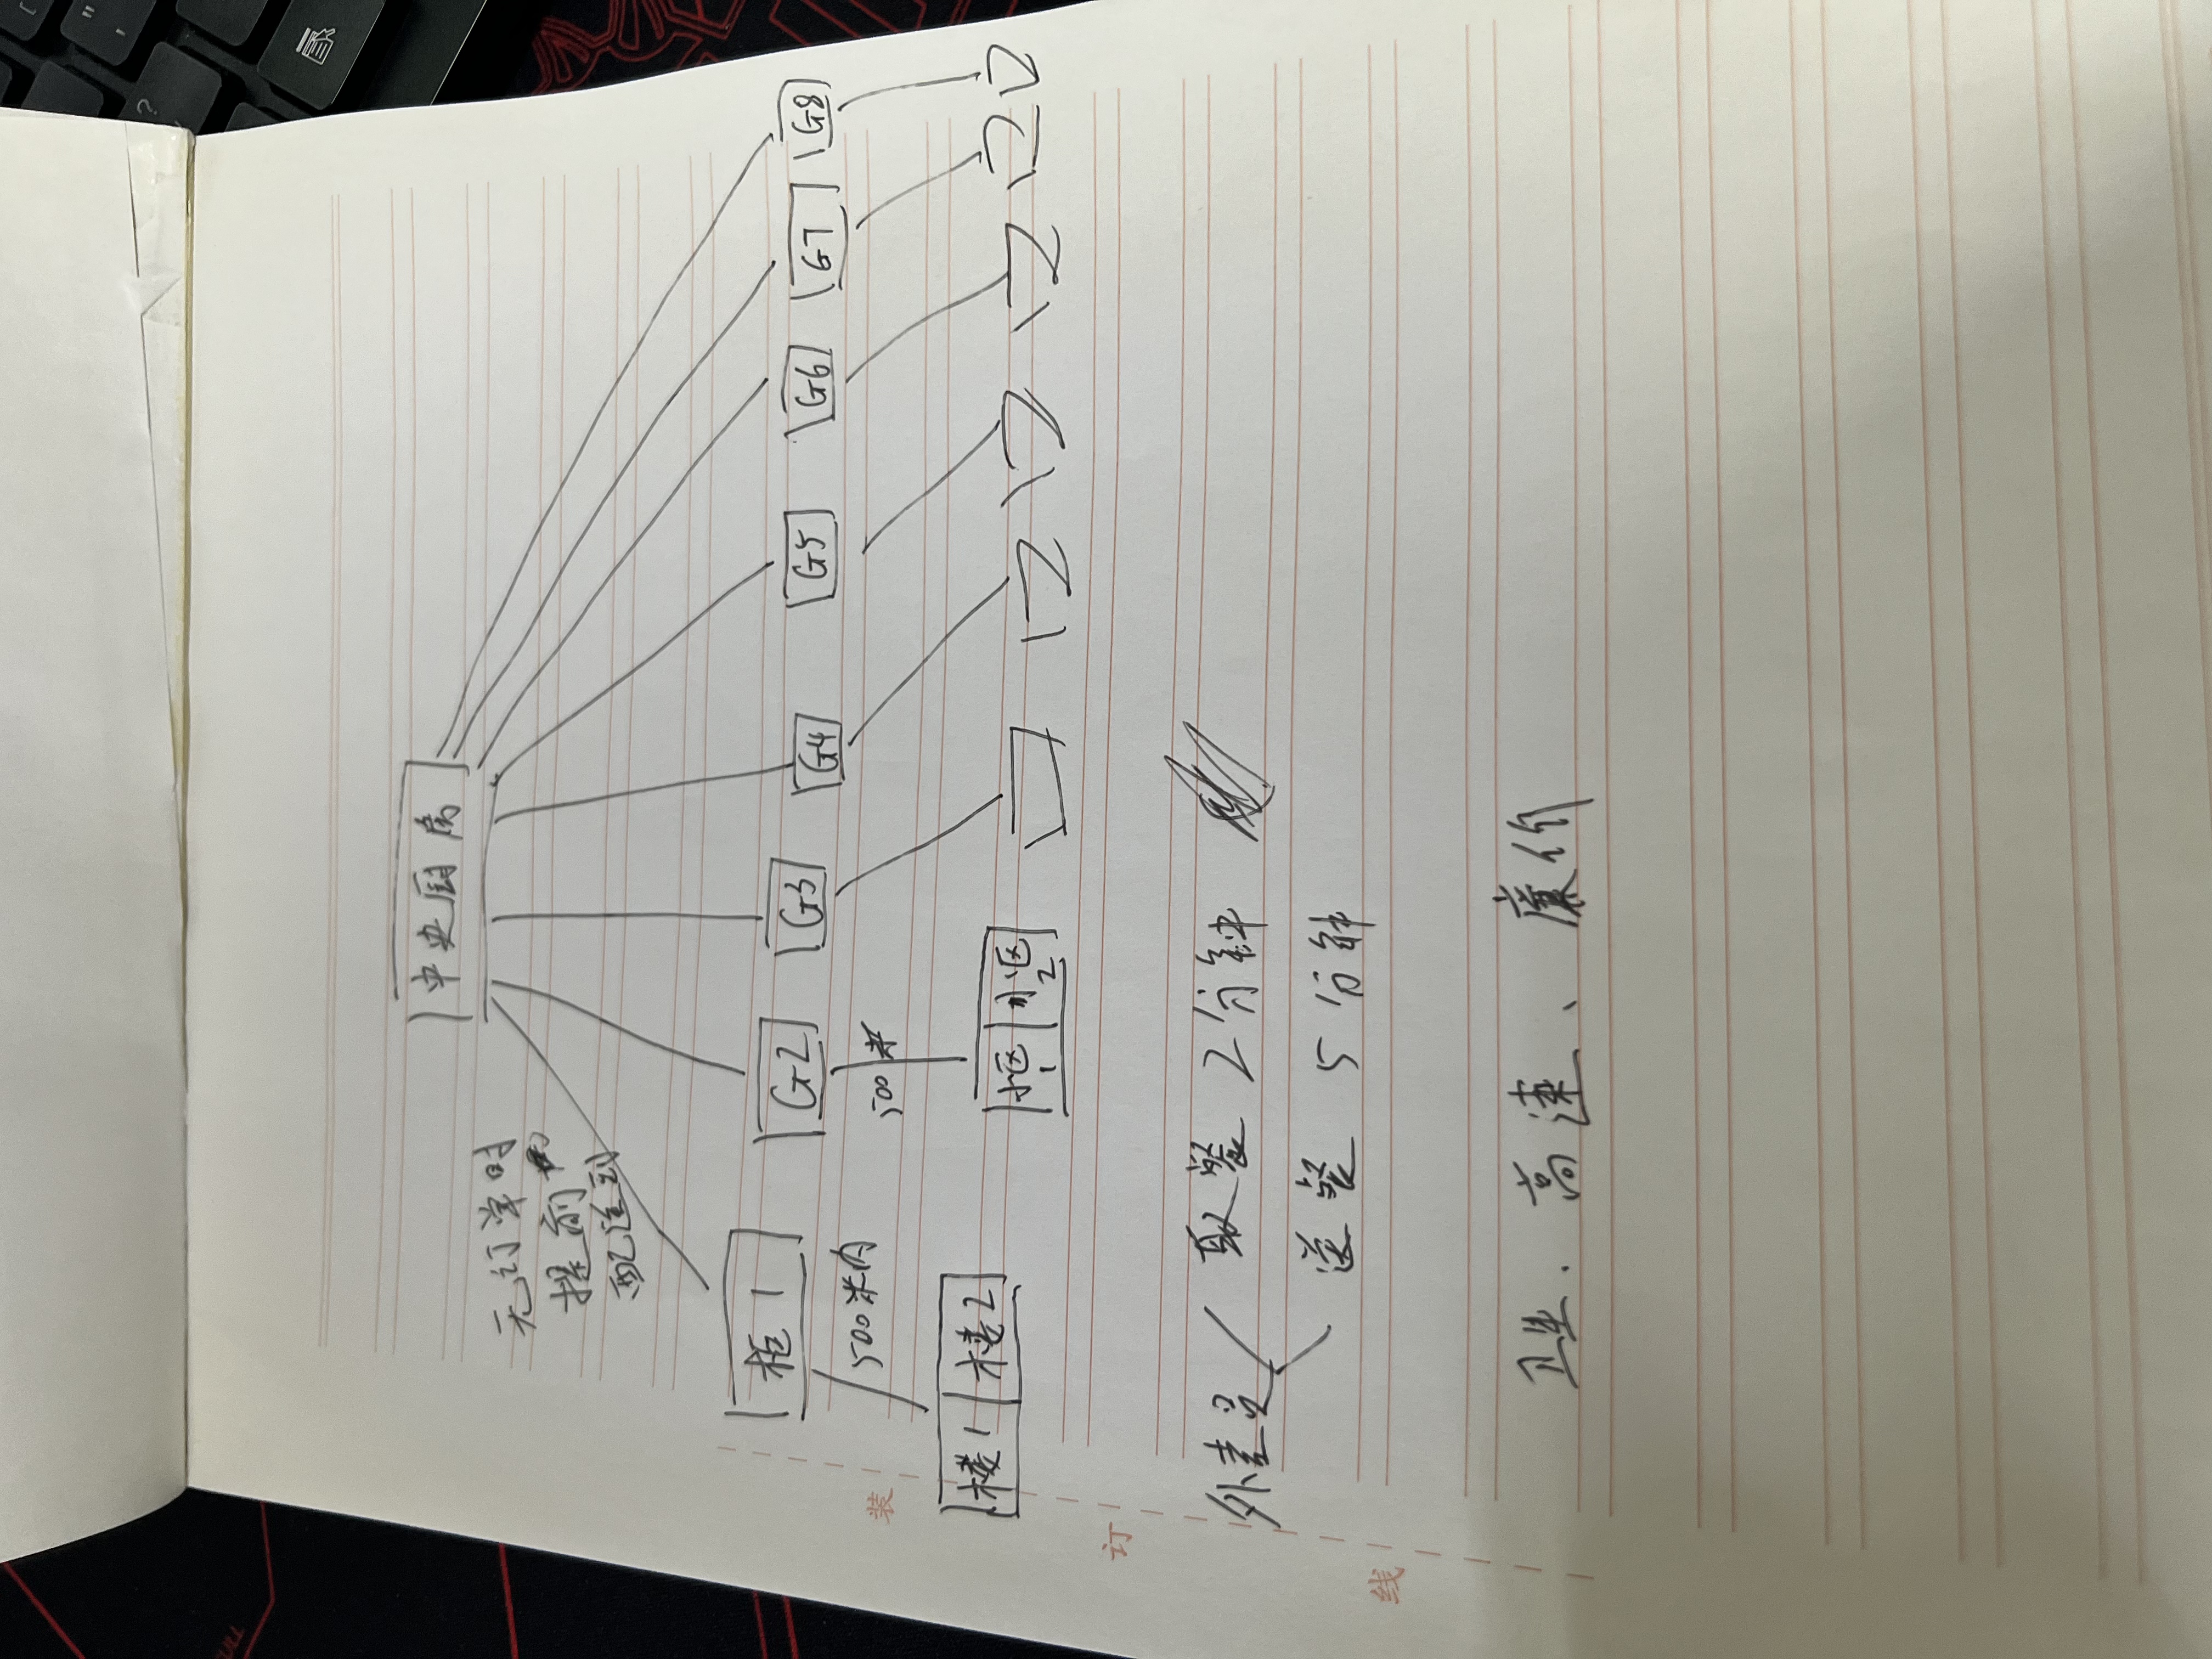 中央厨房
无订单时
提前
配送到
柜1
G2
G3
G4
G5
G6
G7
G8
500米内
500米
楼1 楼2
小区1 小区2
外卖员
取餐 2分钟
送餐 5分钟
卫生、高速、廉价
装
订
线